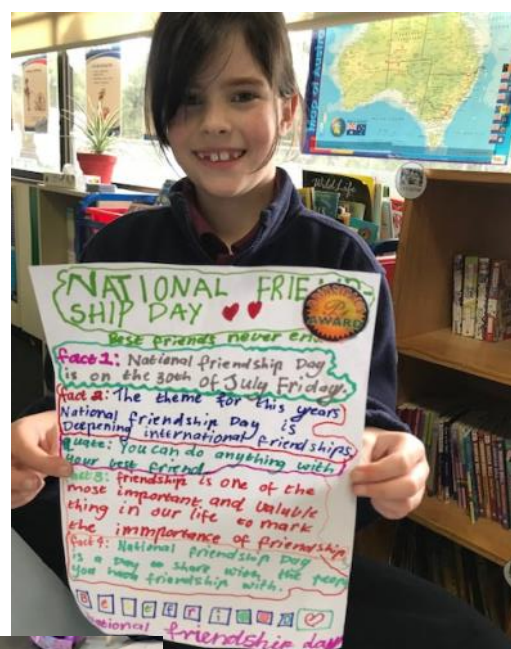 Map of Austr
Wildlife
NATIONAL FRIEND-
SHIP DAY
AWARD
Best friends never en
fact 1: National friendship Day
is on the 30th of July Friday.
fact 2: The theme for this years
National friendship Day is
Deepening international friendships
quate: You can do anything with
your best friend
fact 3: friendship is one of the
most important and valuble
thing in our life to mark
the immportance of friendship
fact 4: National friendship Day
is a Day to share with the people
you have friendship with.
national friendship day